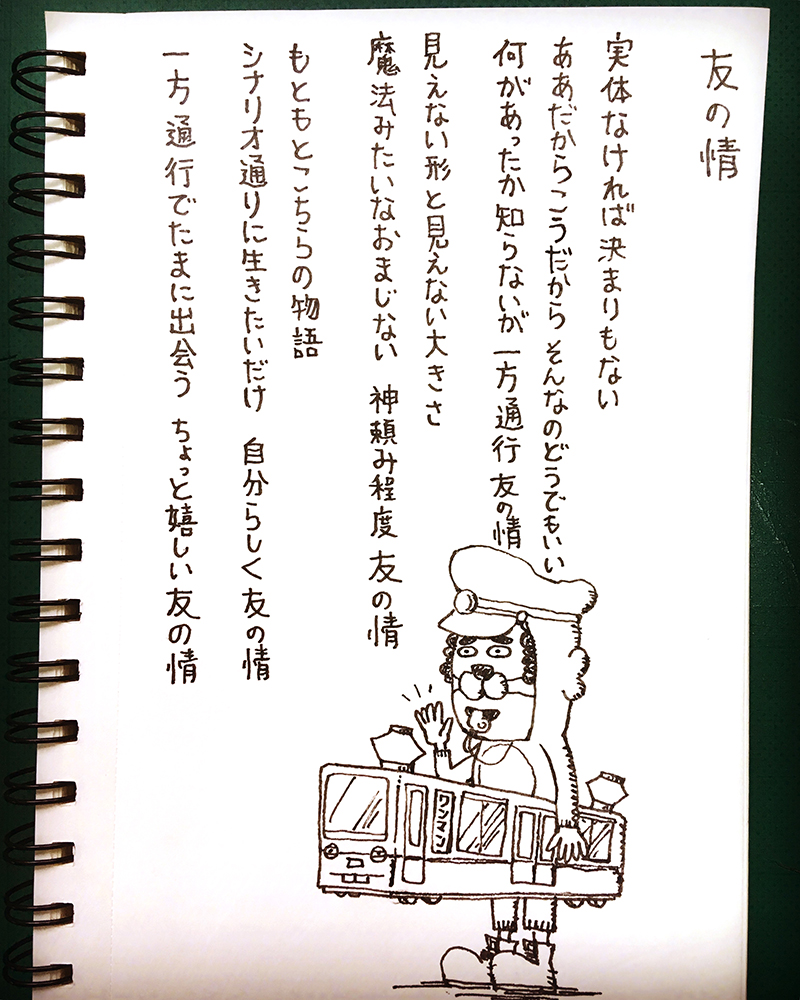 友の情
実体なければ決まりもない
ああだからこうだから そんなのどうでもいい
何があったか知らないが 一方通行 友の情
見えない形と見えない大きさ
魔法みたいなおまじない 神頼み程度 友の情
もともとこちらの物語
シナリオ通りに生きたいだけ 自分らしく 友の情
一方通行でたまに出会う ちょっと嬉しい 友の情
ワンマン